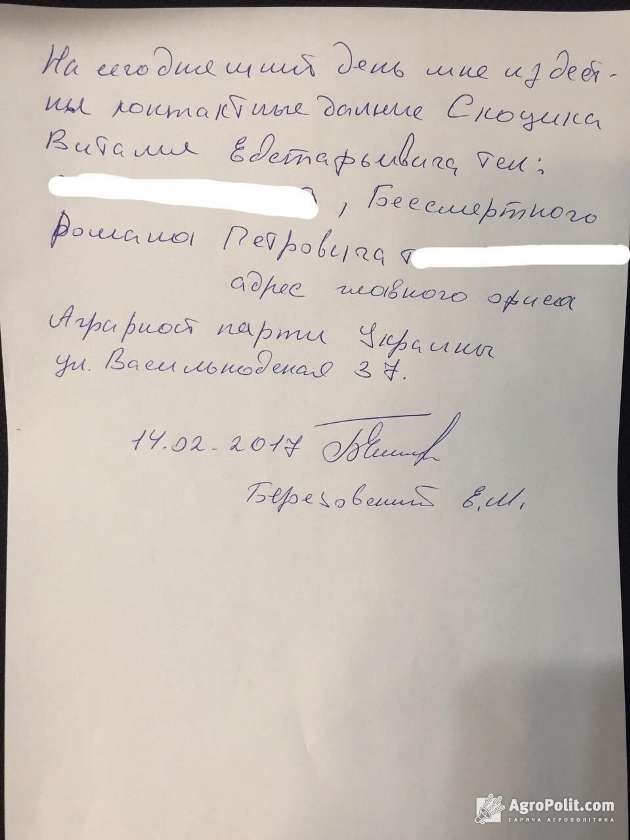 На сегодняшний день мне извест-
ны контактные данние Скоцика
Виталия Евстафьивича тел:
, Бессмертного
Романа Петровича т
адрес главного офиса
Аграрной парти Украины
ул. Васильковская 37.
14.02.2017
Березовский Е.М.
AgroPolit.com
ГАРЯЧА АГРОПОЛІТИКА